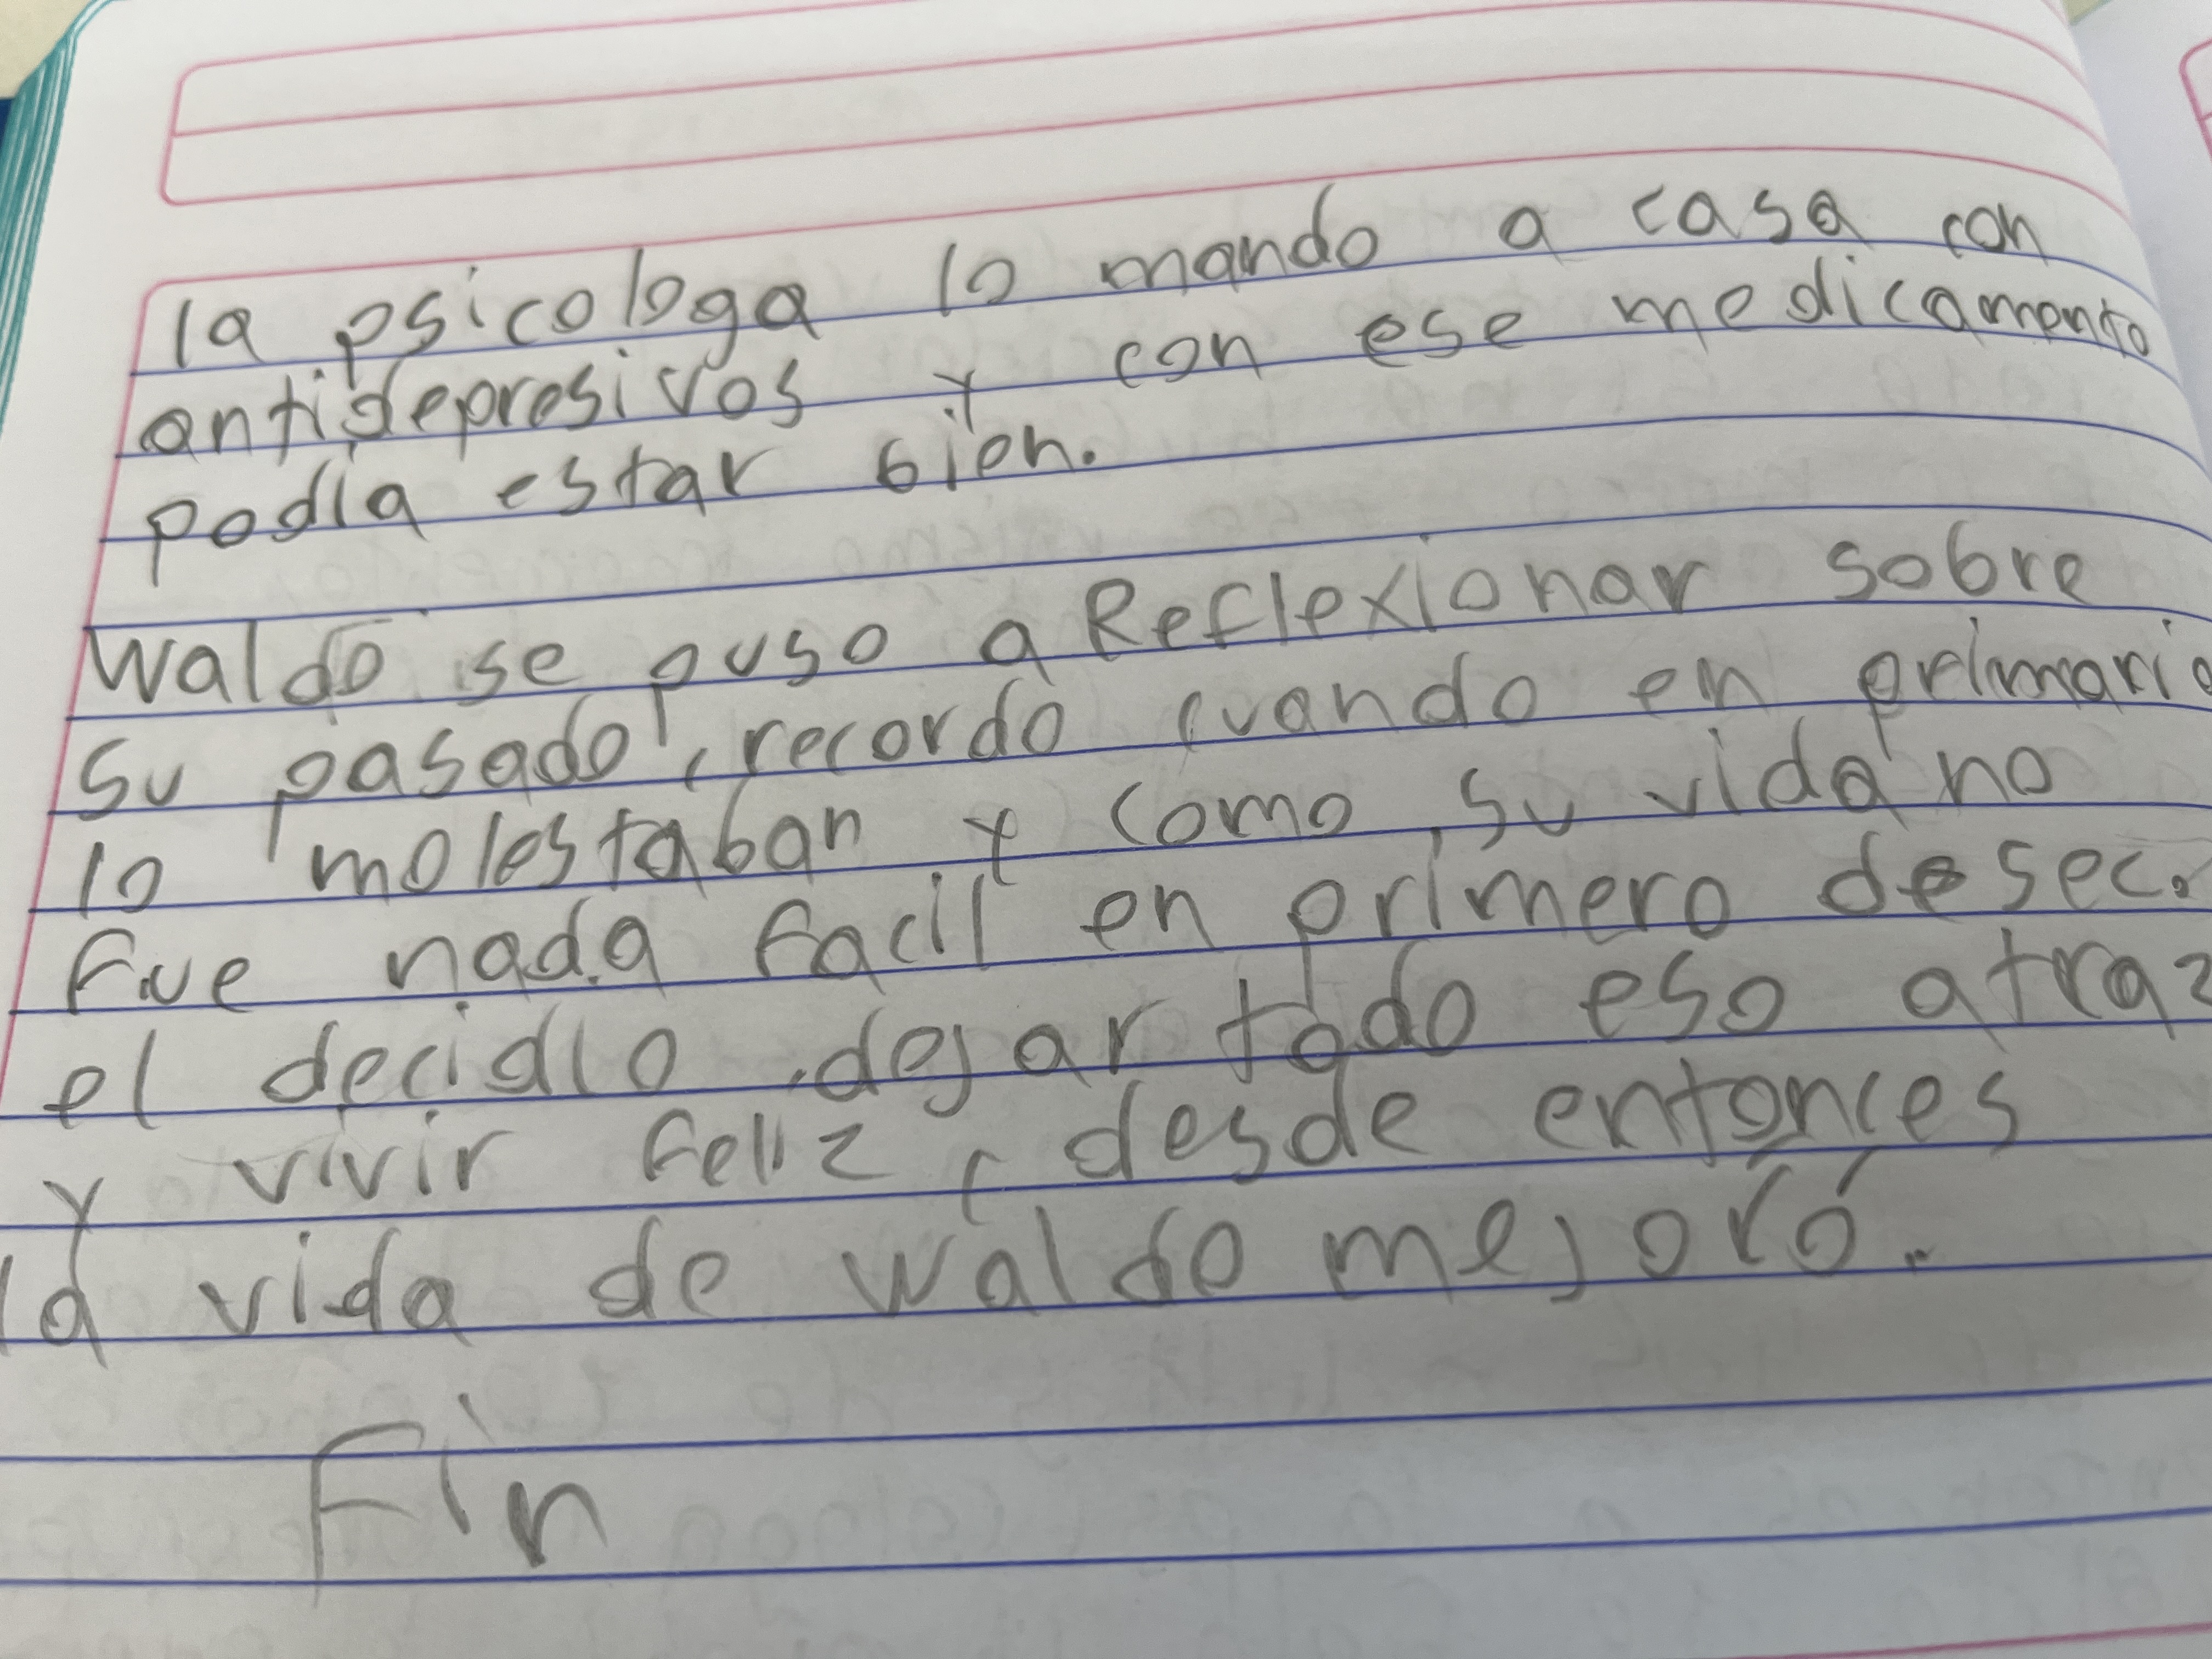 la psicologa lo mando a casa con
antidepresivos y con ese medicamento
podia estar bien.
Waldo se puso a Reflexionar sobre
su pasado, recordo cuando en primaria
lo molestaban y como su vida no
fue nada facil en primero de sec.
el decidio dejar todo eso atraz
y vivir feliz, desde entonces
la vida de waldo mejoró.
Fin